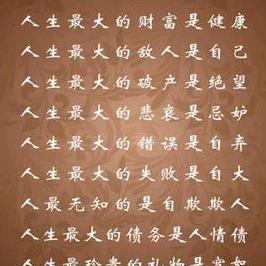 人生最大的财富是健康
人生最大的敌人是自己
人生最大的破产是绝望
人生最大的悲哀是忌妒
人生最大的错误是自弃
人生最大的失败是自大
人最无知的是自欺欺人
人生最大的债务是人情债
人生最珍贵的礼物是宽恕